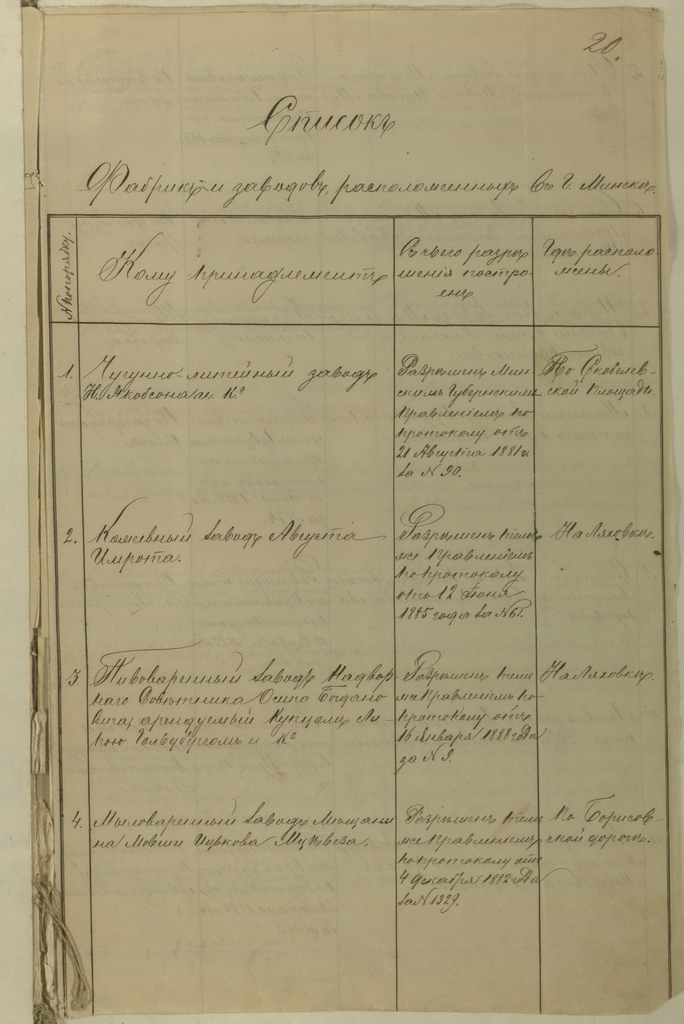 20.
Списокъ
Фабрикъ и заводовъ, расположенныхъ въ г. Минскѣ.
№ по порядку.
Кому принадлежитъ
Съ чьего разрѣ-
шенія постро-
енъ
Гдѣ располо
жены.
1.
Чугунно-литейный заводъ
Н. Якобсона и Кº
Разрѣшенъ Мин-
скимъ Губернскимъ
Правленіемъ по
протоколу отъ
21 Августа 1881 г.
за № 90.
По Скобелев-
ской площади
2.
Кожевный заводъ Августа
Имрота.
Разрѣшенъ тѣмъ
же Правленіемъ
по протоколу
отъ 12 Іюня
1885 года за № 61.
На Ляховкѣ.
3
Пивоваренный заводъ Надвор
наго Совѣтника Осипа Богдано
вича, арендуемый Купцомъ Ли-
Гольдбергомъ и Кº
Разрѣшенъ тѣм
же Правленіемъ по
протоколу отъ
16 Января 1888 года
за № 9.
На Ляховкѣ.
4.
Мыловаренный заводъ Мѣщани
на Мовши Ицкова
Разрѣшенъ тѣм
же Правленіемъ
по протоколу отъ
4 Декабря 1882 года
за № 1329.
По Борисов-
ской дорогѣ.